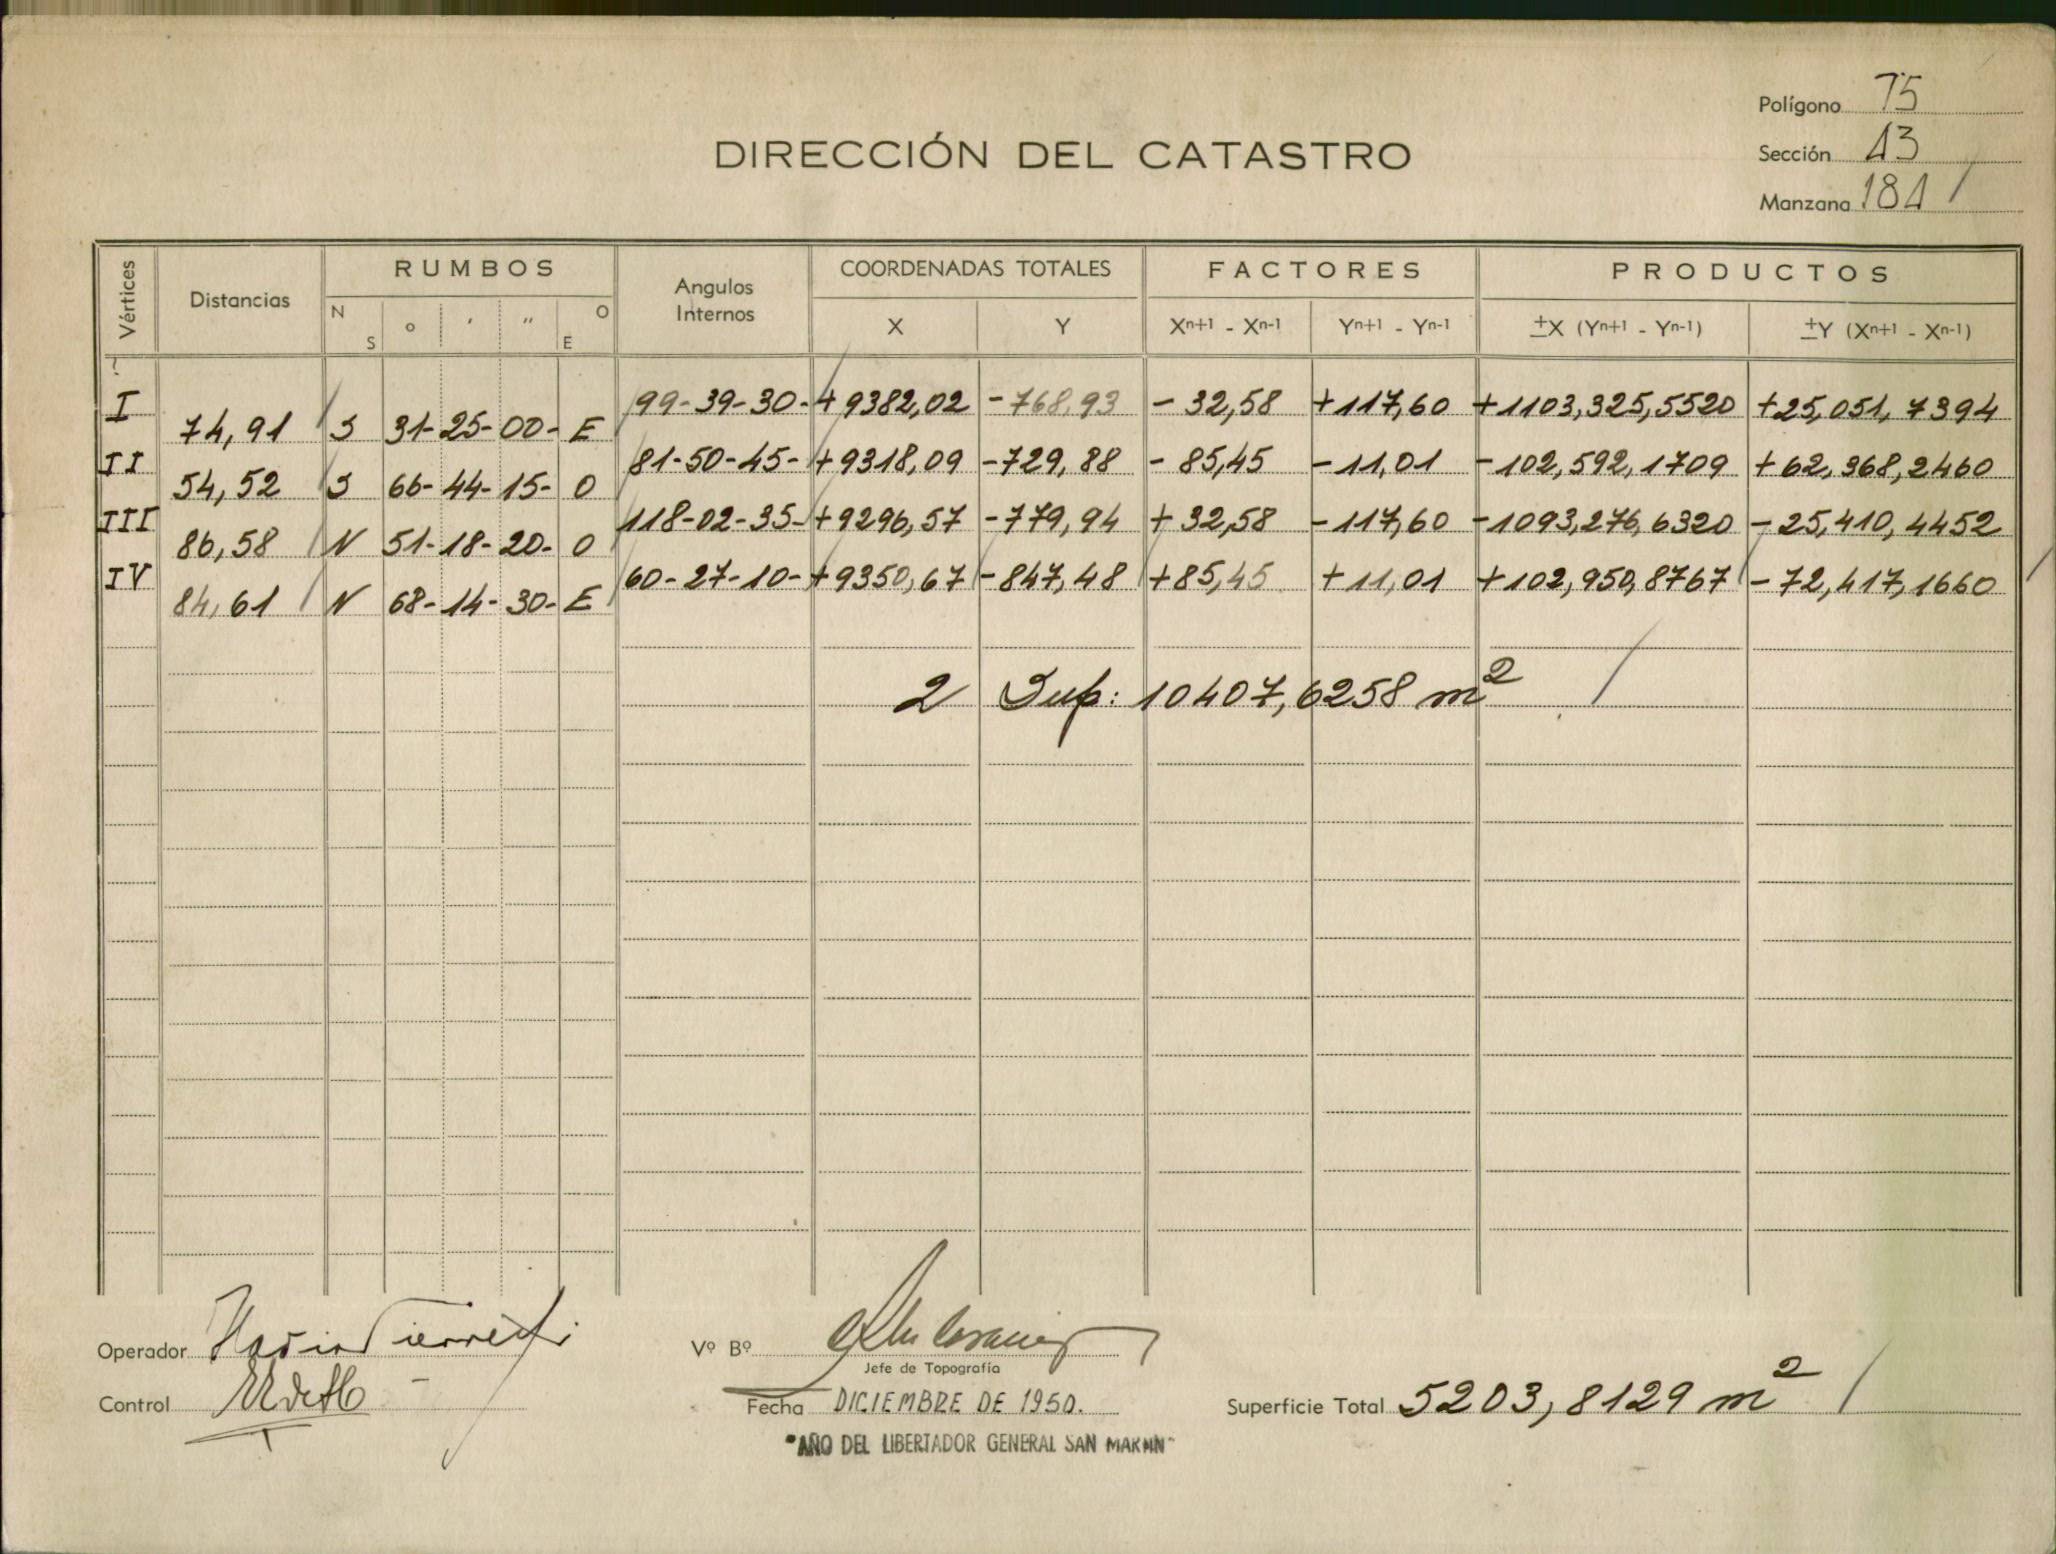 Polígono 75
DIRECCIÓN DEL CATASTRO
Sección 13
Manzana 181
Vértices Distancias RUMBOS N S ° ' '' O E Angulos Internos COORDENADAS TOTALES X Y FACTORES Xn+1 - Xn-1 Yn+1 - Yn-1 PRODUCTOS ±X (Yn+1 - Yn-1) ±Y (Xn+1 - Xn-1)
I 99-39-30- +9382,02 -768,93 - 32,58 +117,60 +1103,325,5520 +25,051,7394
74,91 S 31-25-00- E
II 81-50-45- +9318,09 -729,88 - 85,45 -11,01 -102,592,1709 +62,368,2460
54,52 S 66-44-15- O
III 118-02-35- +9296,57 -779,94 +32,58 -117,60 -1093,276,6320 -25,410,4452
86,58 N 51-18-20- O
IV 60-27-10- +9350,67 -847,48 +85,45 +11,01 +102,950,8767 -72,417,1660
84,61 N 68-14-30- E
2 Sup: 10407,6258 m2
Operador
Vº Bº
Jefe de Topografía
Control
Fecha DICIEMBRE DE 1950.
Superficie Total 5203,8129 m2
"AÑO DEL LIBERTADOR GENERAL SAN MARTIN"